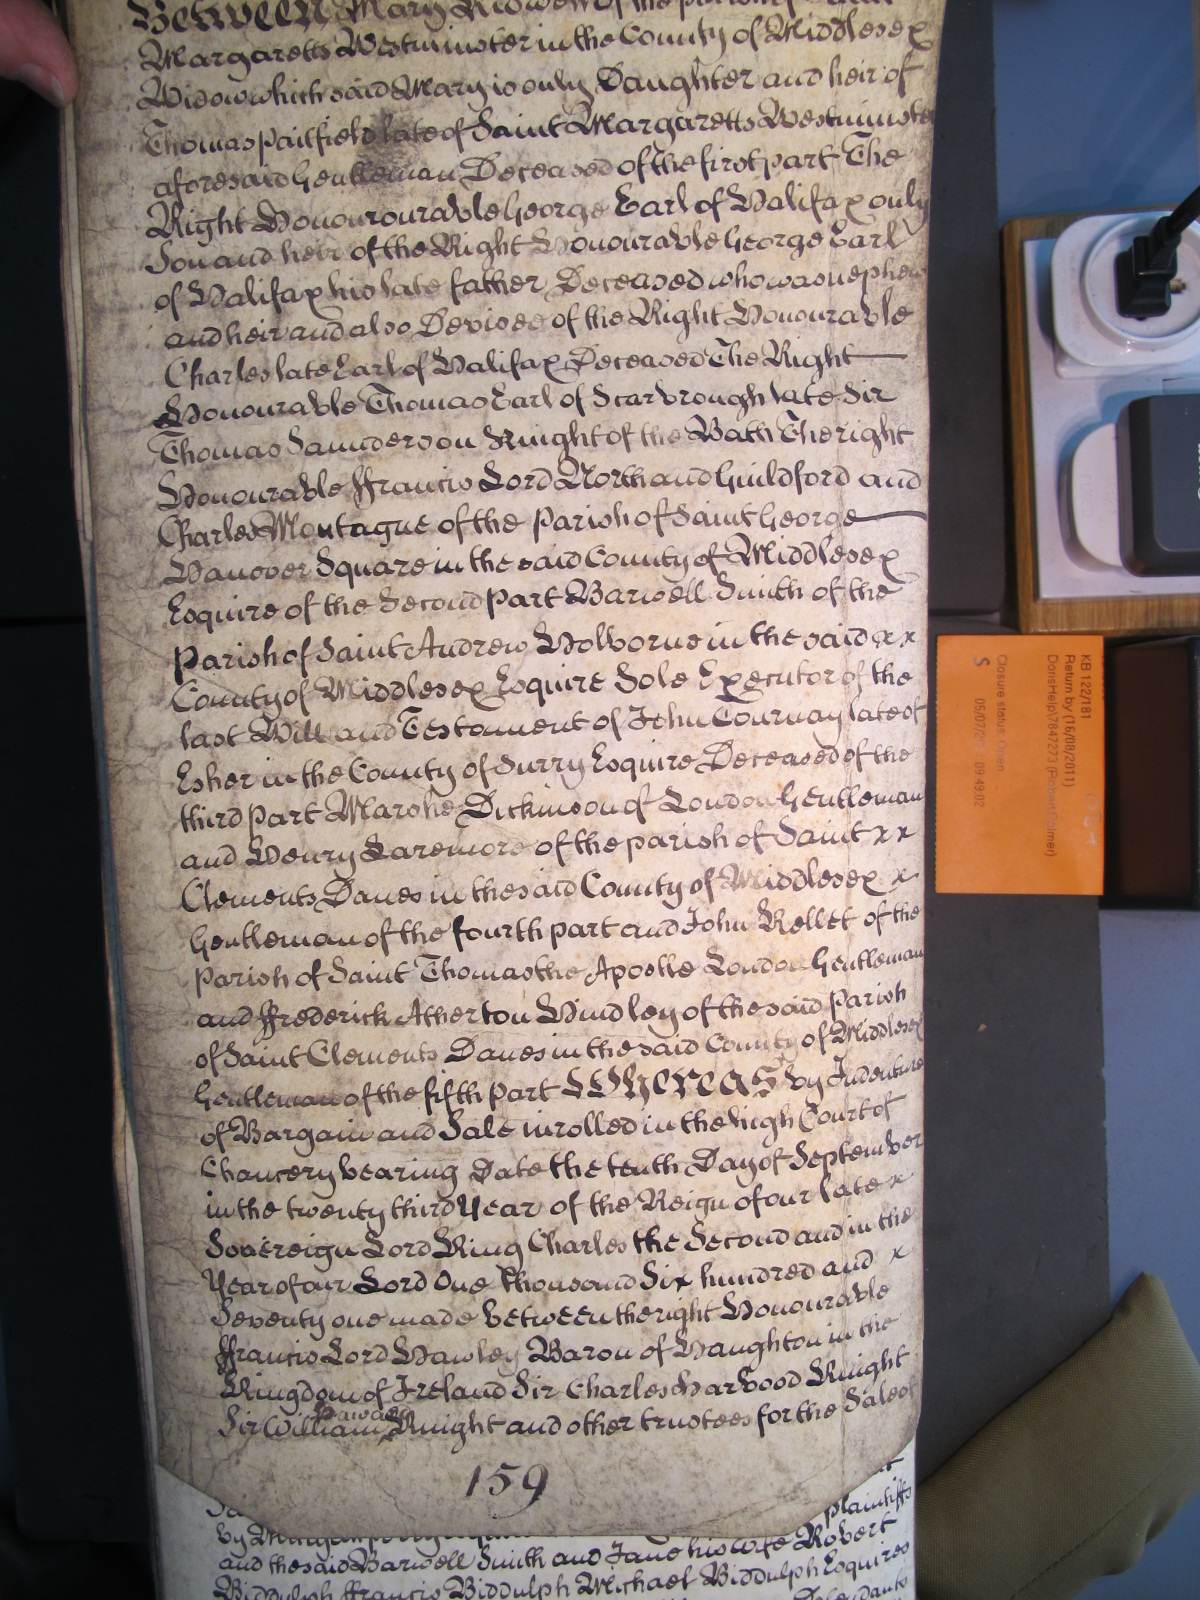 Between Mary Ridwell of the parish of Saint
Margaretts Westminster in the County of Middlesex
Widow which said Mary is only Daughter and heir of
Thomas Patfield late of Saint Margaretts Westminster
aforesaid Gentleman Deceased of the first part The
Right Honourourable George Earl of Halifax only
Son and heir of the Right Honourable George Earl
of Halifax his late father Deceased who was nephew
and heir and also Devisee of the Right Honourable
Charles late Earl of Halifax Deceased The Right
Honourable Thomas Earl of Scarbrough late Sir
Thomas Saunderson Knight of the Bath The right
Honourable ffrancis Lord North and Guildford and
Charles Montague of the Parish of Saint George
Hanover Square in the said County of Middlesex
Esquire of the Second part Barwell Smith of the
parish of Saint Andrew Holborne in the said x x
County of Middlesex Esquire Sole Executor of the
last Will and Testament of John Cournay late of
Esher in the County of Surry Esquire Deceased of the
third part Marshe Dickinson of London Gentleman
and Henry Laremore of the parish of Saint x x
Clements Danes in the said County of Middlesex x
Gentleman of the fourth part and John Kellet of the
parish of Saint Thomas the Apostle London Gentleman
and ffrederick Atherton Hindley of the said Parish
of Saint Clements Danes in the said County of Middlesex
Gentleman of the fifth part Whereas by Indenture
of Bargain and Sale inrolled in the high Court of
Chancery bearing Date the tenth Day of September
in the twenty third Year of the Reign of our late x
Sovereign Lord King Charles the Second and in the
Year of our Lord One thousand Six hundred and x
Seventy one made between the right Honourable
ffrancis Lord Hawley Baron of Haughton in the
Kingdom of Ireland Sir Charles Harbood Knight
Haward
Sir William Knight and other trustees for the Sale of
159
plaintiffs
by
and the said Barwell Smith and Jane his wife Robert
Biddulph ffrancis Biddulph Michael Biddulph Esquires
Defendants
KB 122/181
Return by (16/08/2011)
DorisHelp\7847273 (Robert Palmer)
Closure status: Open
S 05/07/20 09:49:02